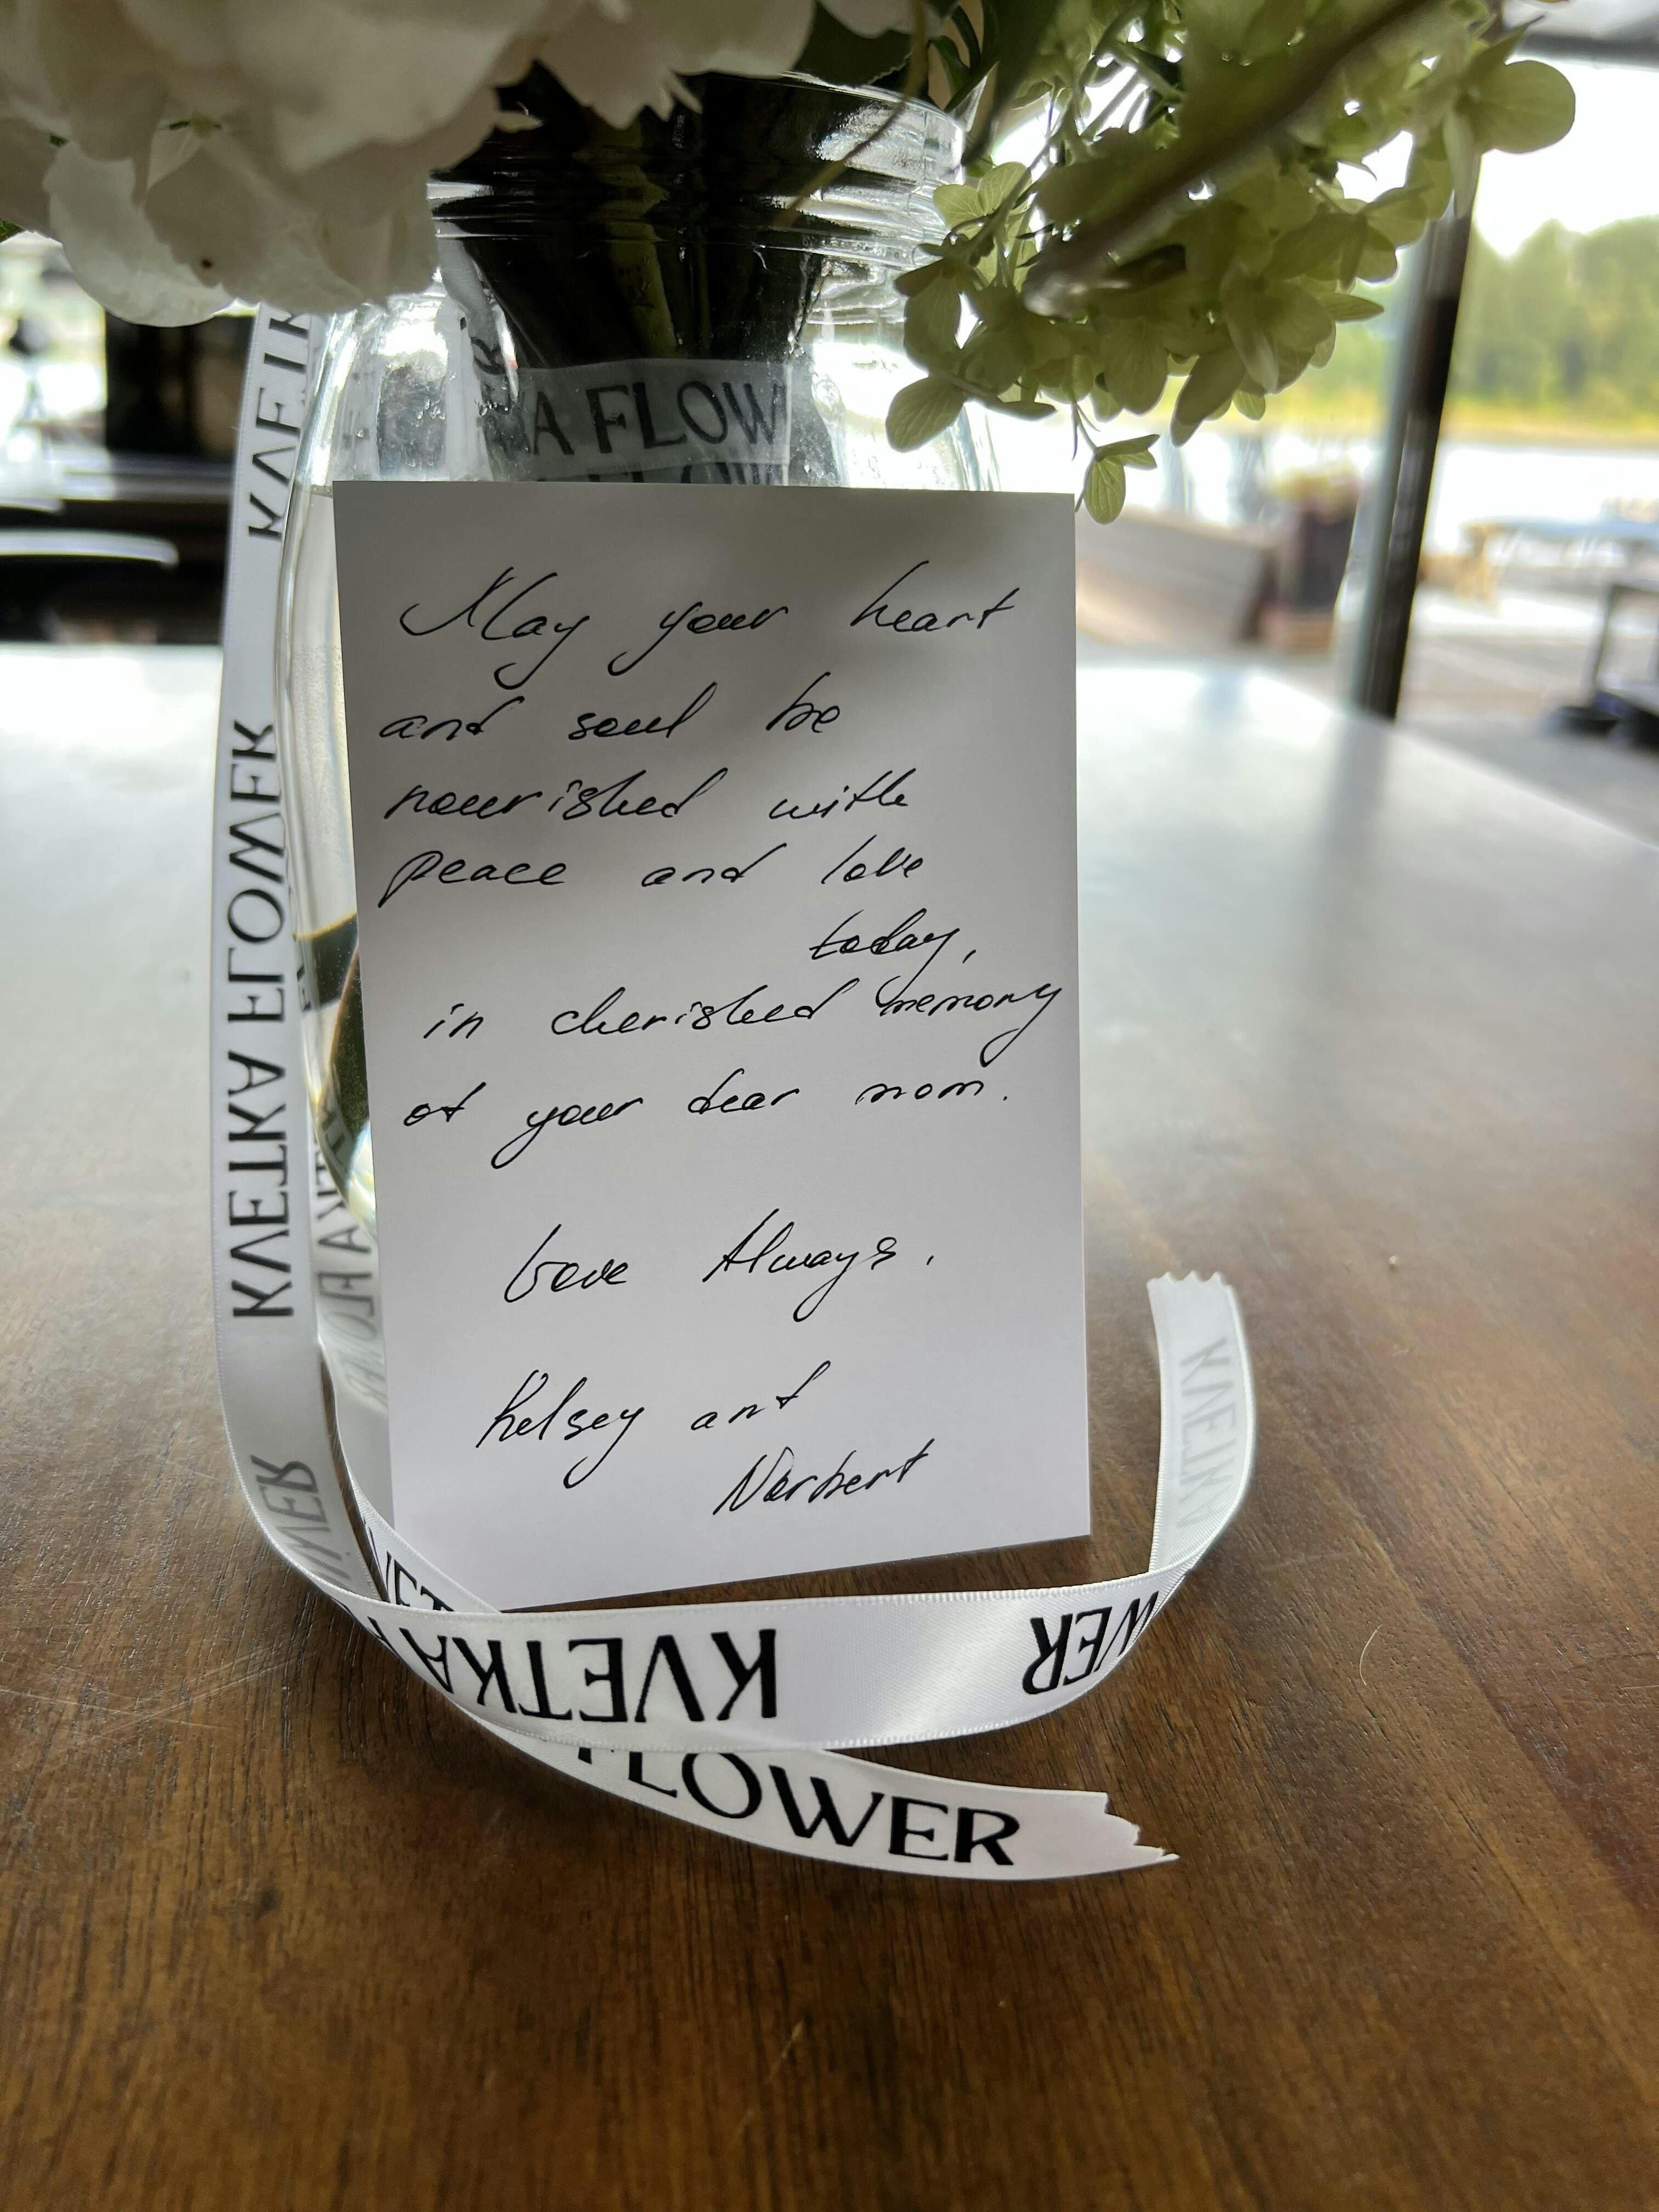 KVETKA FLOWER
A FLOW
May your heart
and soul be
nourished with
peace and love
today,
in cherished memory
of your dear mom.
Love Always.
Kelsey and
Norbert
KVETKA
WER
FLOWER